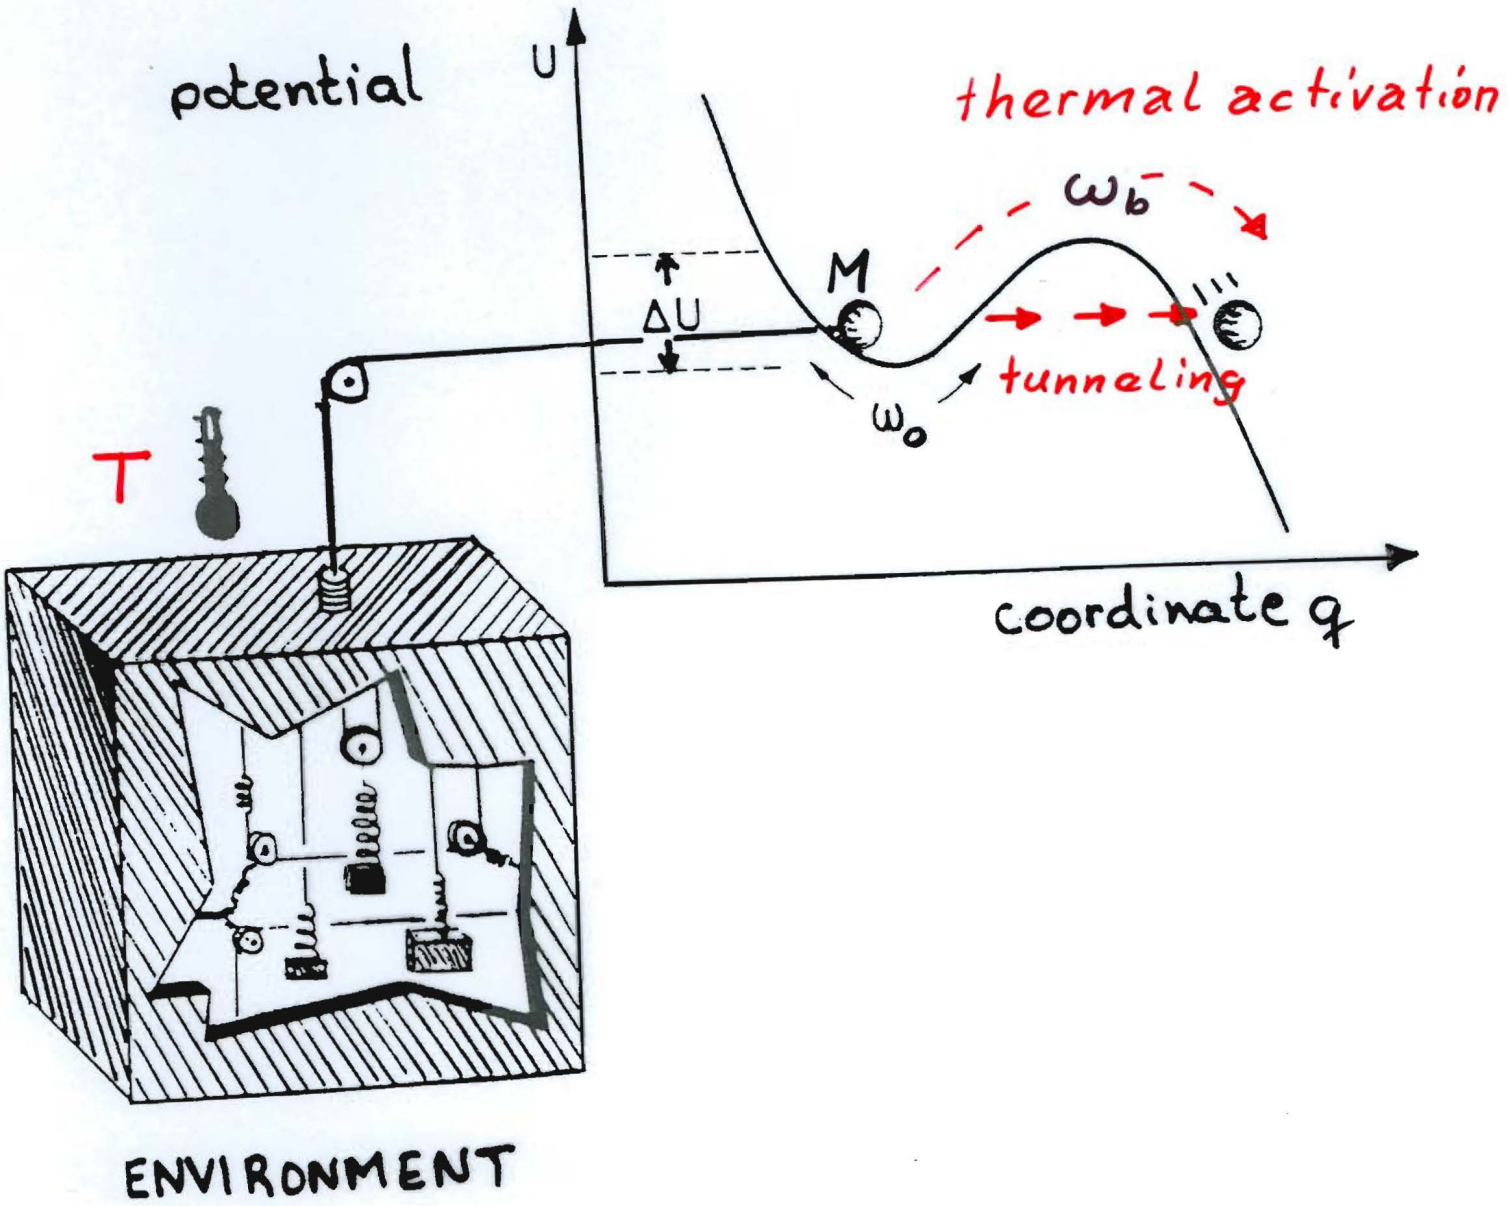 potential
U
thermal activation
ω_b
M
ΔU
tunneling
ω_0
T
coordinate q
ENVIRONMENT